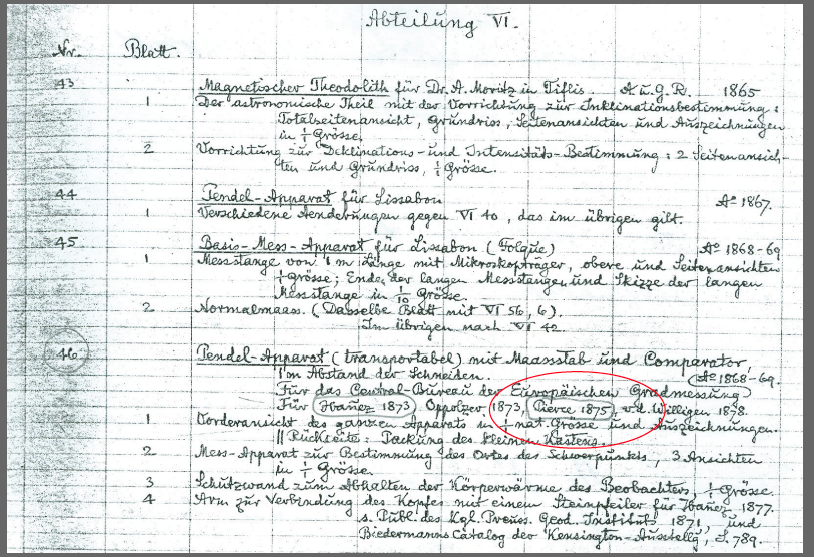 Abteilung VI.
Nr. Blatt.
43 Magnetischer Theodolith für Dr. A. Moritz in Tiflis. A u. G. R. 1865
1 Der astronomische Theil mit der Vorrichtung zur Inklinationsbestimmung:
Totalseitenansicht, Grundriss, Seitenansichten und Auszeichnungen
in 1/1 Grösse.
2 Vorrichtung zur Deklinations- und Intensitäts-Bestimmung: 2 Seitenansich-
ten und Grundriss, 1/1 Grösse.
44 Pendel-Apparat für Lissabon Ao 1867.
1 Verschiedene Aenderungen gegen VI 40, das im übrigen gilt.
45 Basis-Mess-Apparat für Lissabon (Folque) Ao 1868-69
1 Messstange von 1 m Länge mit Mikroskopträger, obere und Seitenansichten
1/1 Grösse; Enden der langen Messstangen und Skizze der langen
Messstange in 1/10 Grösse.
2 Normalmaass. (Dasselbe Blatt mit VI 56, 6).
Im übrigen nach VI 42.
46 Pendel-Apparat (transportabel) mit Maassstab und Comparator
1 m Abstand der Schneiden. Ao 1868-69.
Für das Central-Bureau der Europäischen Gradmessung
Für Ibañez 1873, Oppolzer 1873, Pierce 1875, v. d. Willigen 1878.
1 Vorderansicht des ganzen Apparats in nat. Grösse und Auszeichnungen.
|| Rückseite: Packung des kleinen Kastens.
2 Mess-Apparat zur Bestimmung des Ortes des Schwerpunkts, 3 Ansichten
in 1/1 Grösse.
3 Schutzwand zum Abhalten der Körperwärme des Beobachters, 1/1 Grösse.
4 Arm zur Verbindung des Kopfes mit einem Steinpfeiler für Ibañez 1877.
s. Publ. des Kgl. Preuss. Geod. Instituts 1871, und
Biedermanns Catalog der Kensington-Ausstellg, S. 789.